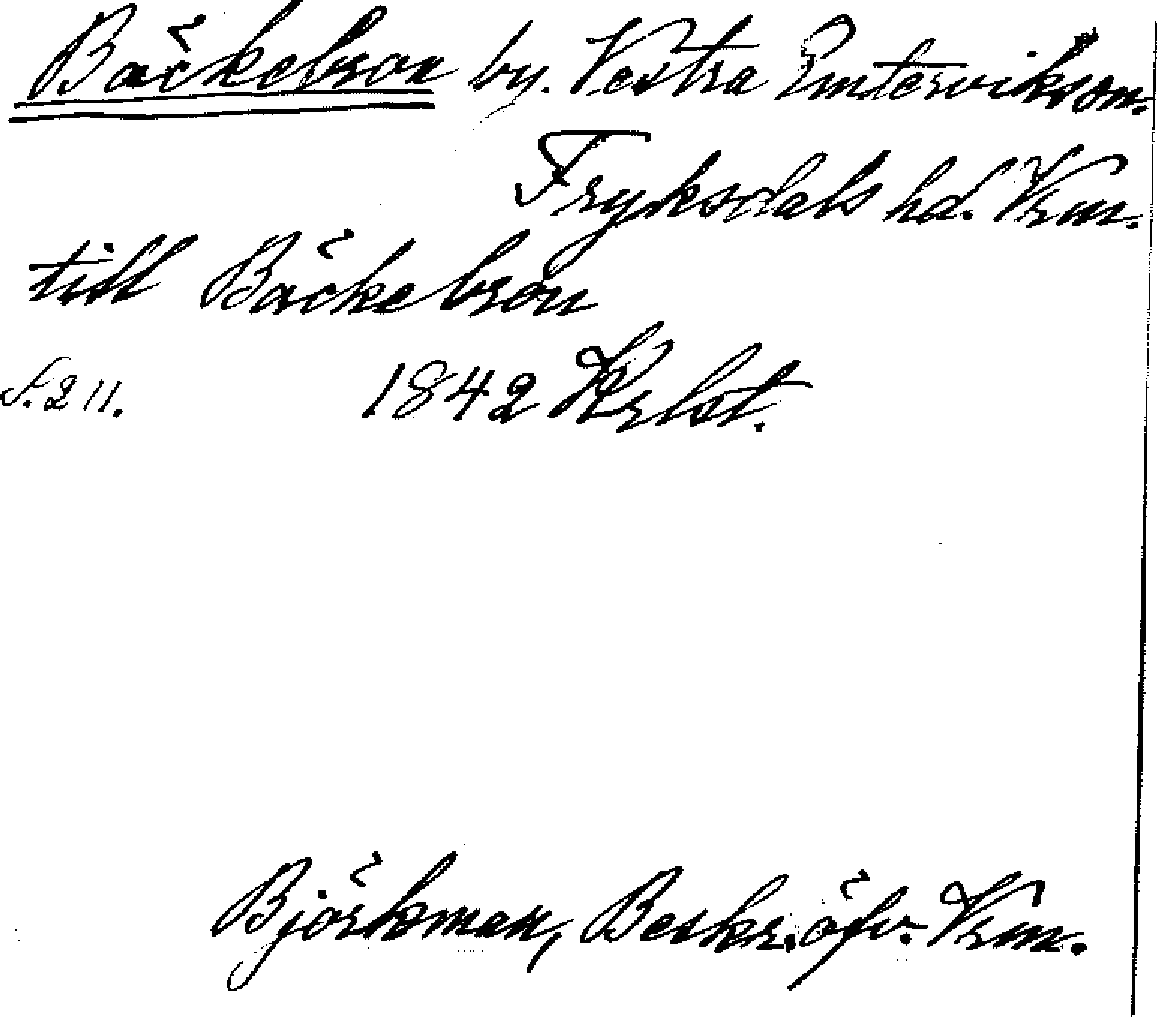 Bäckebron by. Vestra Emterviks sn.
Fryksdals hd. Vrm.
till Bäckebron
s. 211. 1842 Krlst.
Björkman, Beskr. öfv. Vrm.